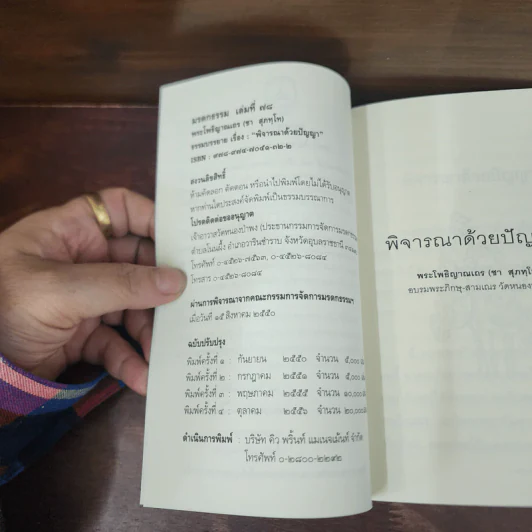 มรดกธรรม เล่มที่ ๗๘
พระโพธิญาณเถร (ชา สุภทฺโท)
ธรรมบรรยาย เรื่อง : "พิจารณาด้วยปัญญา"
ISBN : ๙๗๘-๙๗๔-๗๐๔๑-๓๒-๒
สงวนลิขสิทธิ์
ห้ามคัดลอก ตัดตอน หรือนำไปพิมพ์โดยไม่ได้รับอนุญาต
หากท่านใดประสงค์จัดพิมพ์เป็นธรรมบรรณาการ
โปรดติดต่อขออนุญาต
เจ้าอาวาสวัดหนองป่าพง (ประธานกรรมการจัดการมรดกธรรม)
ตำบลโนนผึ้ง อำเภอวารินชำราบ จังหวัดอุบลราชธานี
โทรศัพท์ ๐-๔๕๒๖-๗๕๖๓, ๐-๔๕๒๖-๘๐๘๔
โทรสาร ๐-๔๕๒๖-๘๐๘๔
ผ่านการพิจารณาจากคณะกรรมการจัดการมรดกธรรมฯ
เมื่อวันที่ ๑๕ สิงหาคม ๒๕๕๐
ฉบับปรับปรุง
พิมพ์ครั้งที่ ๑ : กันยายน ๒๕๕๐ จำนวน ๕,๐๐๐
พิมพ์ครั้งที่ ๒ : กรกฎาคม ๒๕๕๑ จำนวน ๕,๐๐๐
พิมพ์ครั้งที่ ๓ : พฤษภาคม ๒๕๕๕ จำนวน ๑๐,๐๐๐
พิมพ์ครั้งที่ ๔ : ตุลาคม ๒๕๕๖ จำนวน ๒๐,๐๐๐
ดำเนินการพิมพ์ : บริษัท คิว พริ้นท์ แมเนจเม้นท์ จำกัด
โทรศัพท์ ๐-๒๘๐๐-๒๒๙๒
พิจารณาด้วยปัญ
พระโพธิญาณเถร (ชา สุภทฺโ
อบรมพระภิกษุ-สามเณร วัดหนอง